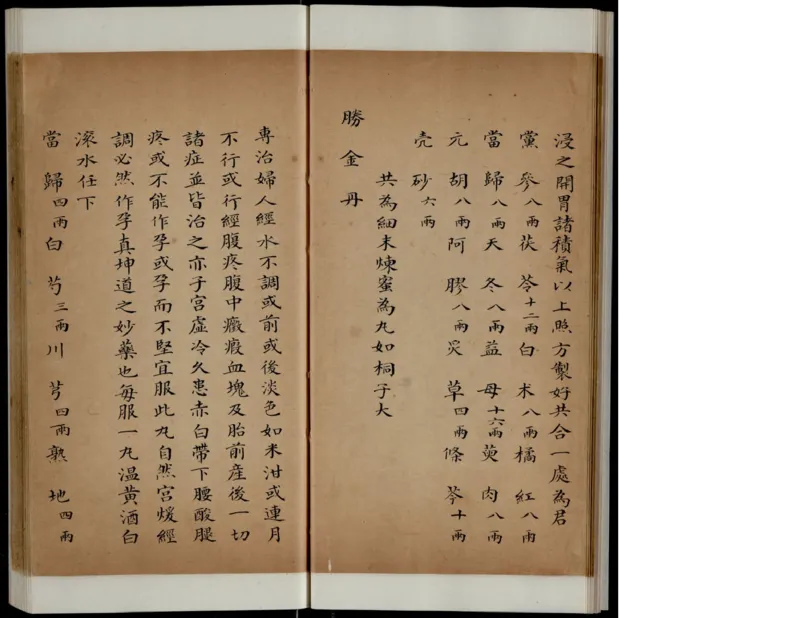 浸之開胃諸積氣以上照方製好共合一處為君
黨參八兩茯苓十二兩白朮八兩橘紅八兩
當歸八兩天冬八兩益母十六兩萸肉八兩
元胡八兩阿膠八兩炙草四兩條芩十兩
壳砂六兩
共為細末煉蜜為丸如桐子大
勝金丹
專治婦人經水不調或前或後淡色如米泔或連月
不行或行經腹疼腹中癥瘕血塊及胎前産後一切
諸症並皆治之亦子宮虛冷久患赤白帶下腰酸腿
疼或不能作孕或孕而不堅宜服此丸自然宮煖經
調必然作孕真坤道之妙藥也每服一丸溫黃酒白
滚水任下
當歸四兩白芍三兩川芎四兩熟地四兩